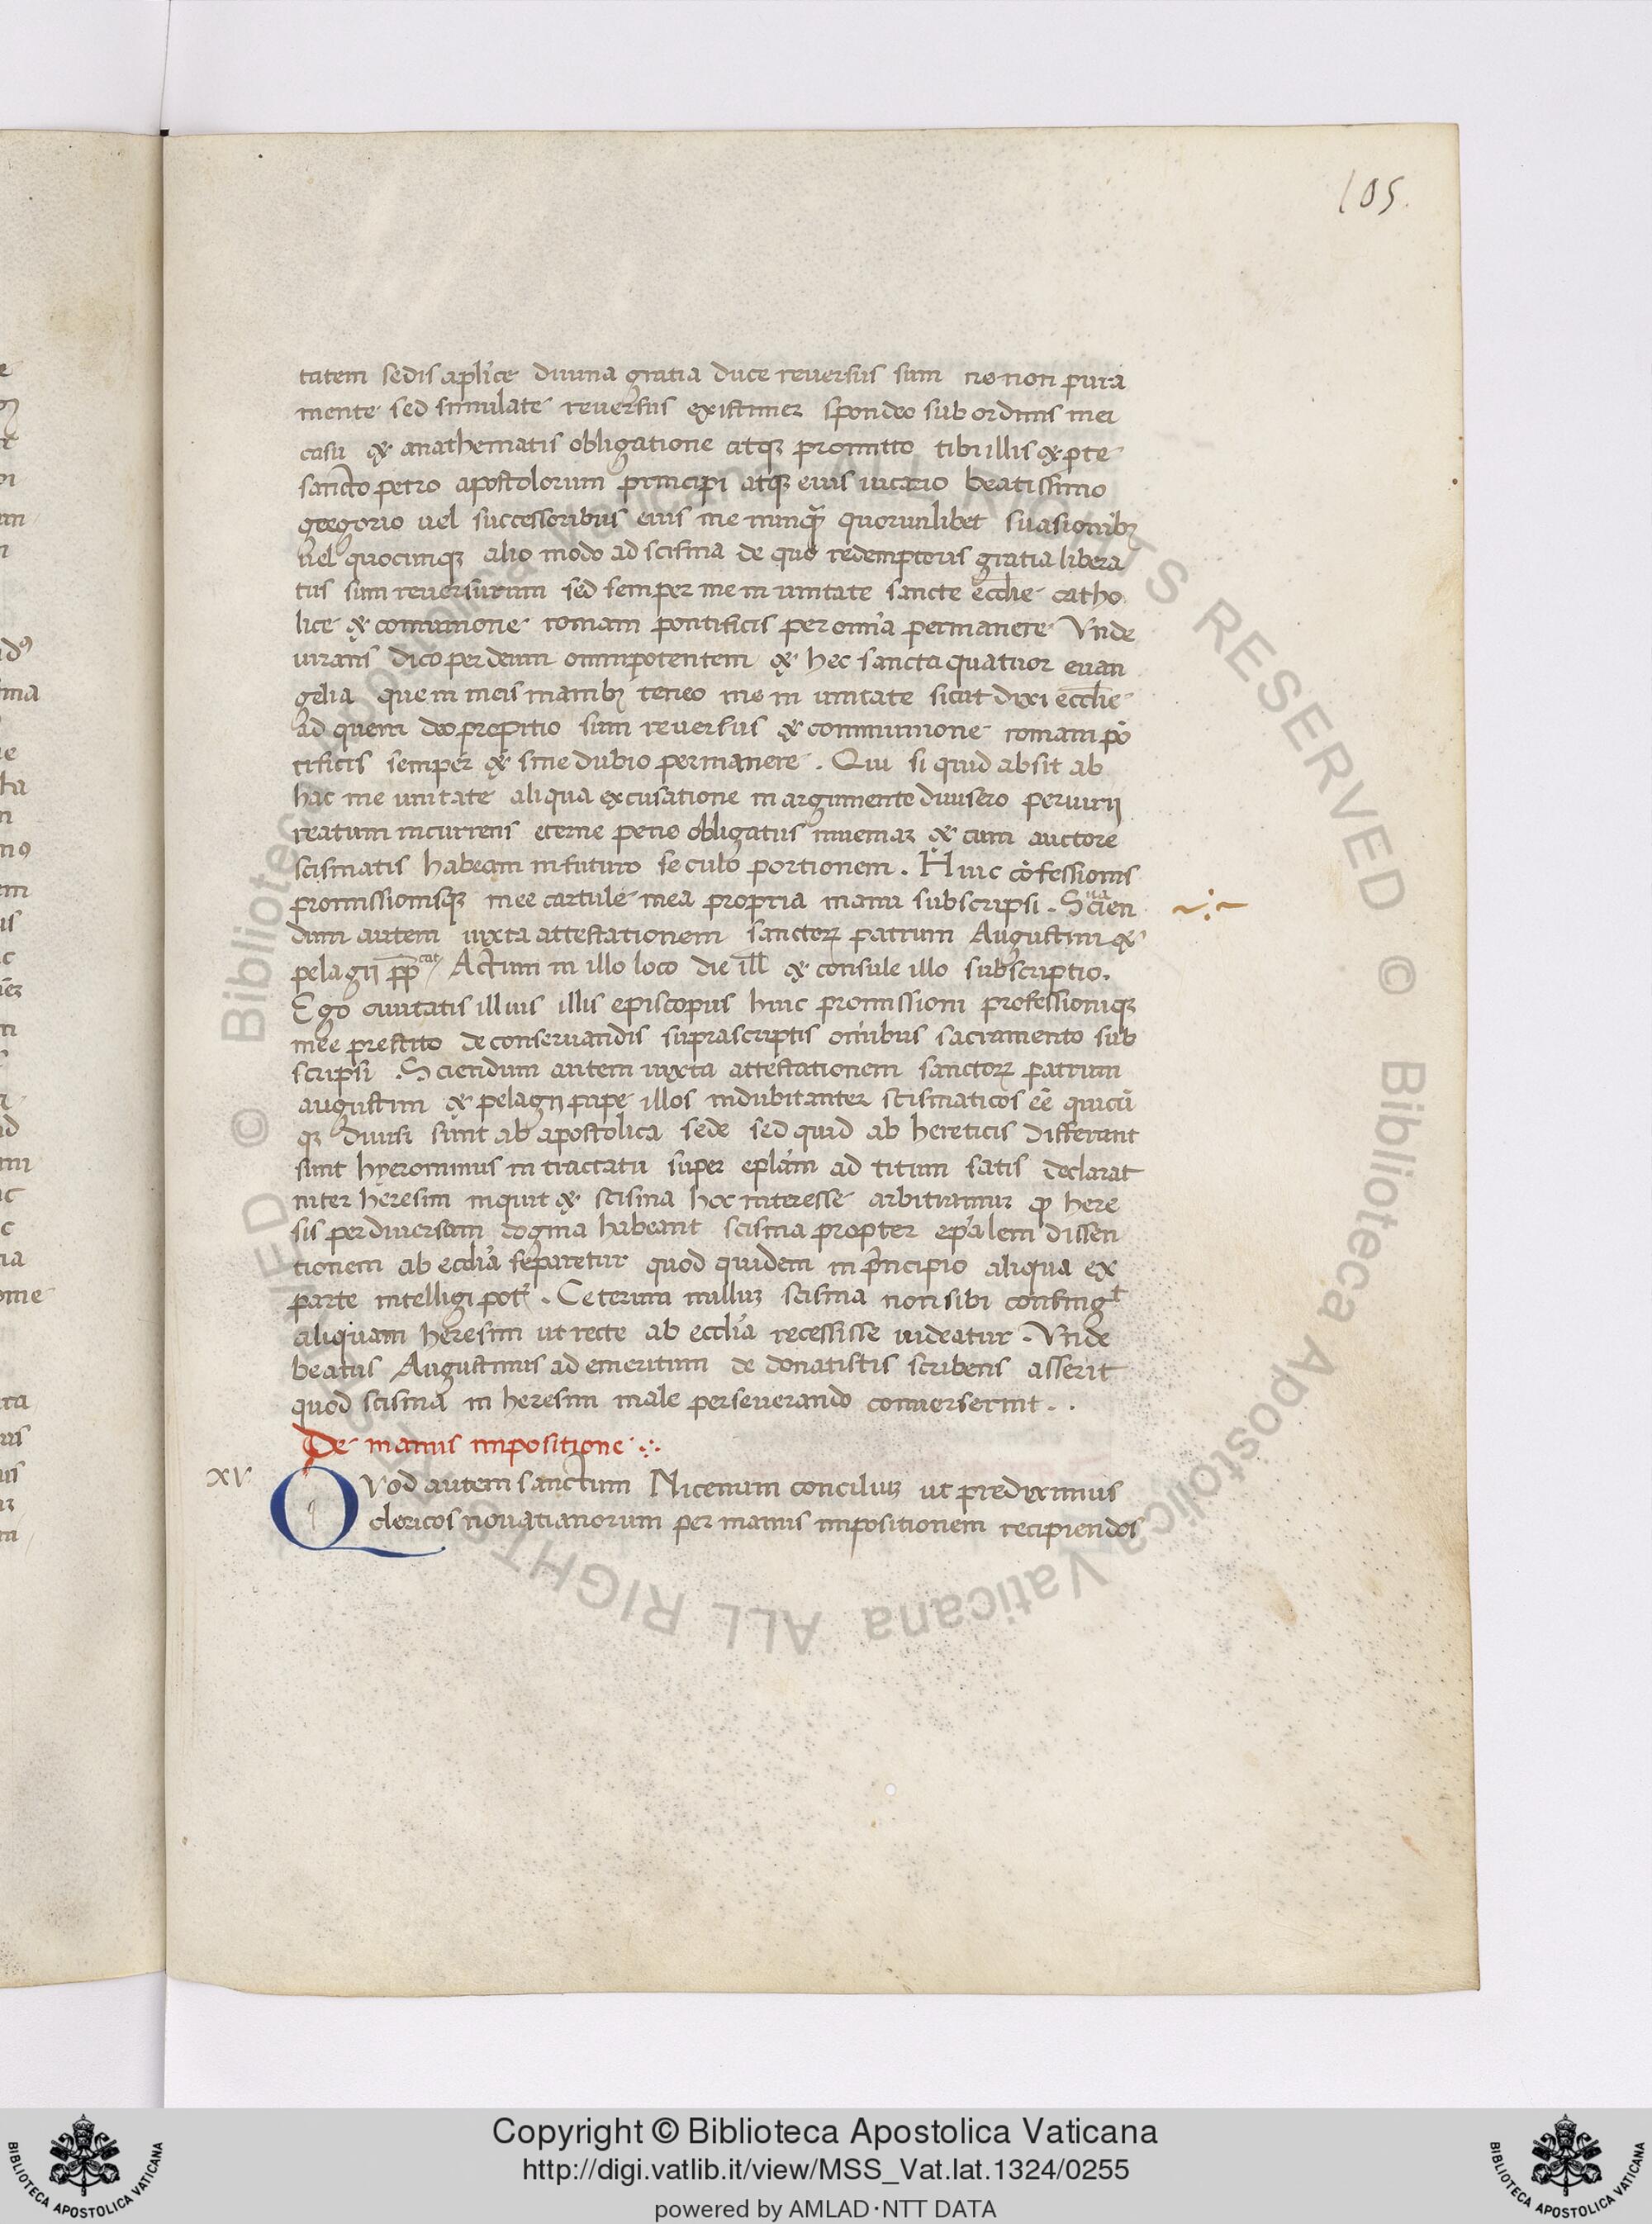 105.
tatem sedis apl'ice diuina gratia duce reuersus sum ne non pura
mente sed simulate reuersus existimer spondeo sub ordinis mei
casu & anathematis obligatione atqꝫ promitto tibi illis & pte
sancto petro apostolorum principi atqꝫ eius uicario beatissimo
gregorio uel successoribus eius me nunq̃ quorunlibet suasionibꝫ
uel quocunqꝫ alio modo ad scisma de quo redemptoris gratia libera
tus sum reuersurum sed semper me in unitate sancte eccl̄ie catho
lice & comunione romani pontificis per omīa permanere Vnde
iurans dico per deum omnipotentem & hec sancta quatuor euan
gelia que in meis manibꝫ teneo me in unitate sicut dixi eccl̄ie
ad quem deo propitio sum reuersus & communione romani pō
tificis semper & sine dubio permanere . Qui si quid absit ab
hac me unitate aliqua excusatione in argumento diuisero periurij
reatum incurrens eterne pene obligatus inueniaꝛ & cum auctore
scismatis habeam in futuro seculo portionem . Huic cōfessionis
promissionisqꝫ mee cartule mea propria manu subscripsi . Scien
dum autem iuxta attestationem sanctoꝝ patrum Augustini &
pelagij pp̄ Actum in illo loco die ill̄ & consule illo subscriptio.
Ego ciuitatis illius illis episcopus huic promissioni professioniqꝫ
mee prestito de conseruandis suprascriptis omībus sacramento sub
scripsi . Sciendum autem iuxta attestationem sanctoꝝ patrum
augustini & pelagij pape illos indubitanter scismaticos eē quicū
qꝫ diuisi sunt ab apostolica sede sed quid ab hereticis differant
sunt hyeronimus in tractatu super epl'am ad titum satis declarat
inter heresim inquit & scisma hoc interesse arbitramur ꝙ here
sis per diuersum dogma habeant scisma propter ep'alem dissen
tionem ab eccl'ia separetur quod quidem in principio aliqua ex
parte intelligi pot' . Ceterum nulluꝫ scisma non sibi confingt
aliquam heresim ut recte ab eccl'ia recessisse uideatur . Vnde
beatus Augustinus ad emeritum de donatistis scribens asserit
quod scisma in heresim male perseuerando conuerserint . .
De manus impositione ∴
XV
QVod autem sanctum Nicenum conciliuꝫ ut prediximus
clericos nouatianorum per manus impositionem recipiendos
Copyright © Biblioteca Apostolica Vaticana
http://digi.vatlib.it/view/MSS_Vat.lat.1324/0255
powered by AMLAD·NTT DATA
© Biblioteca Apostolica Vaticana ALL RIGHTS RESERVED © Biblioteca Apostolica Vaticana ALL RIGHTS RESERVED
BIBLIOTECA APOSTOLICA VATICANA
BIBLIOTECA APOSTOLICA VATICANA